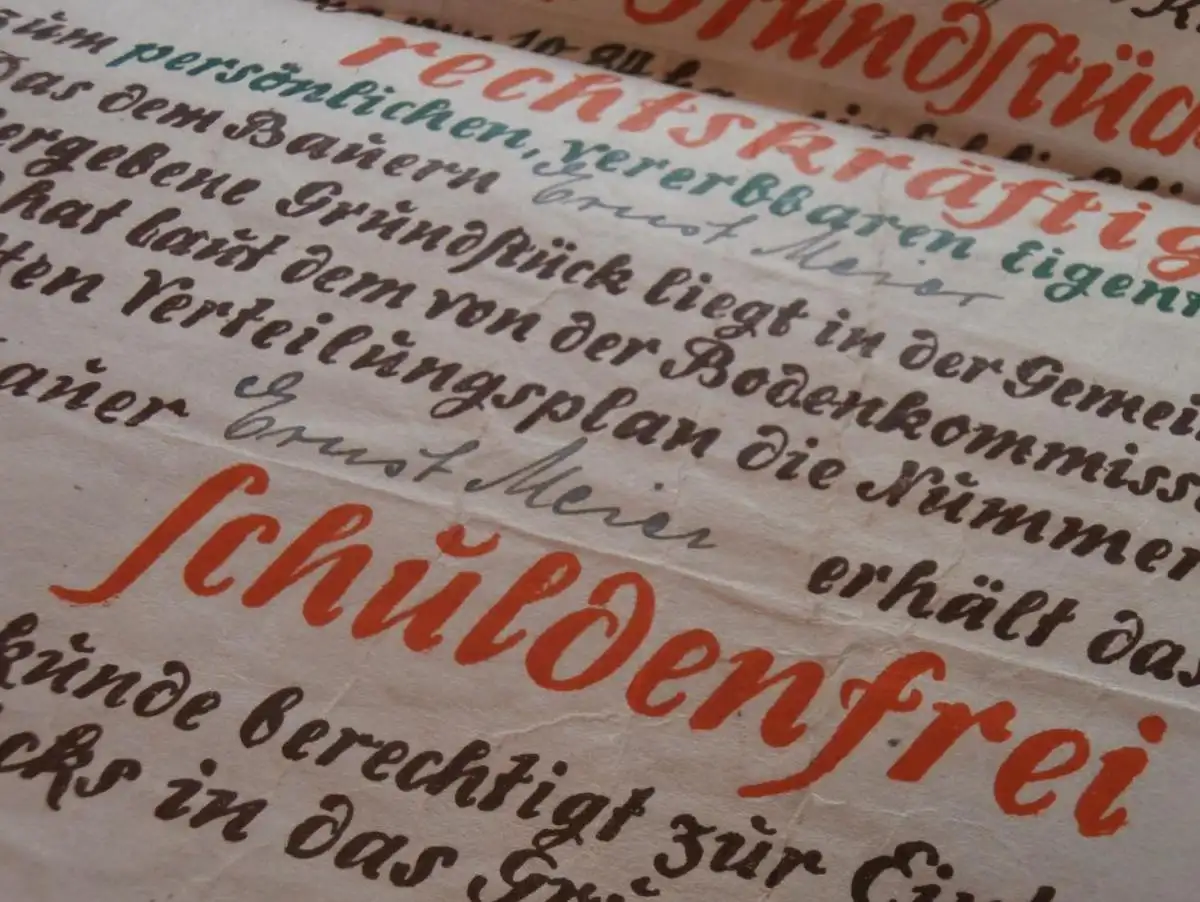 Grundstück
rechtskräftig
zum persönlichen, vererbbaren Eigen
Das dem Bauern Ernst Meier
ergebene Grundstück liegt in der Gemei
hat laut dem von der Bodenkommiss
ten Verteilungsplan die Nummer
auer Ernst Meier erhält das
schuldenfrei
kunde berechtigt zur Ein
cks in das Gru